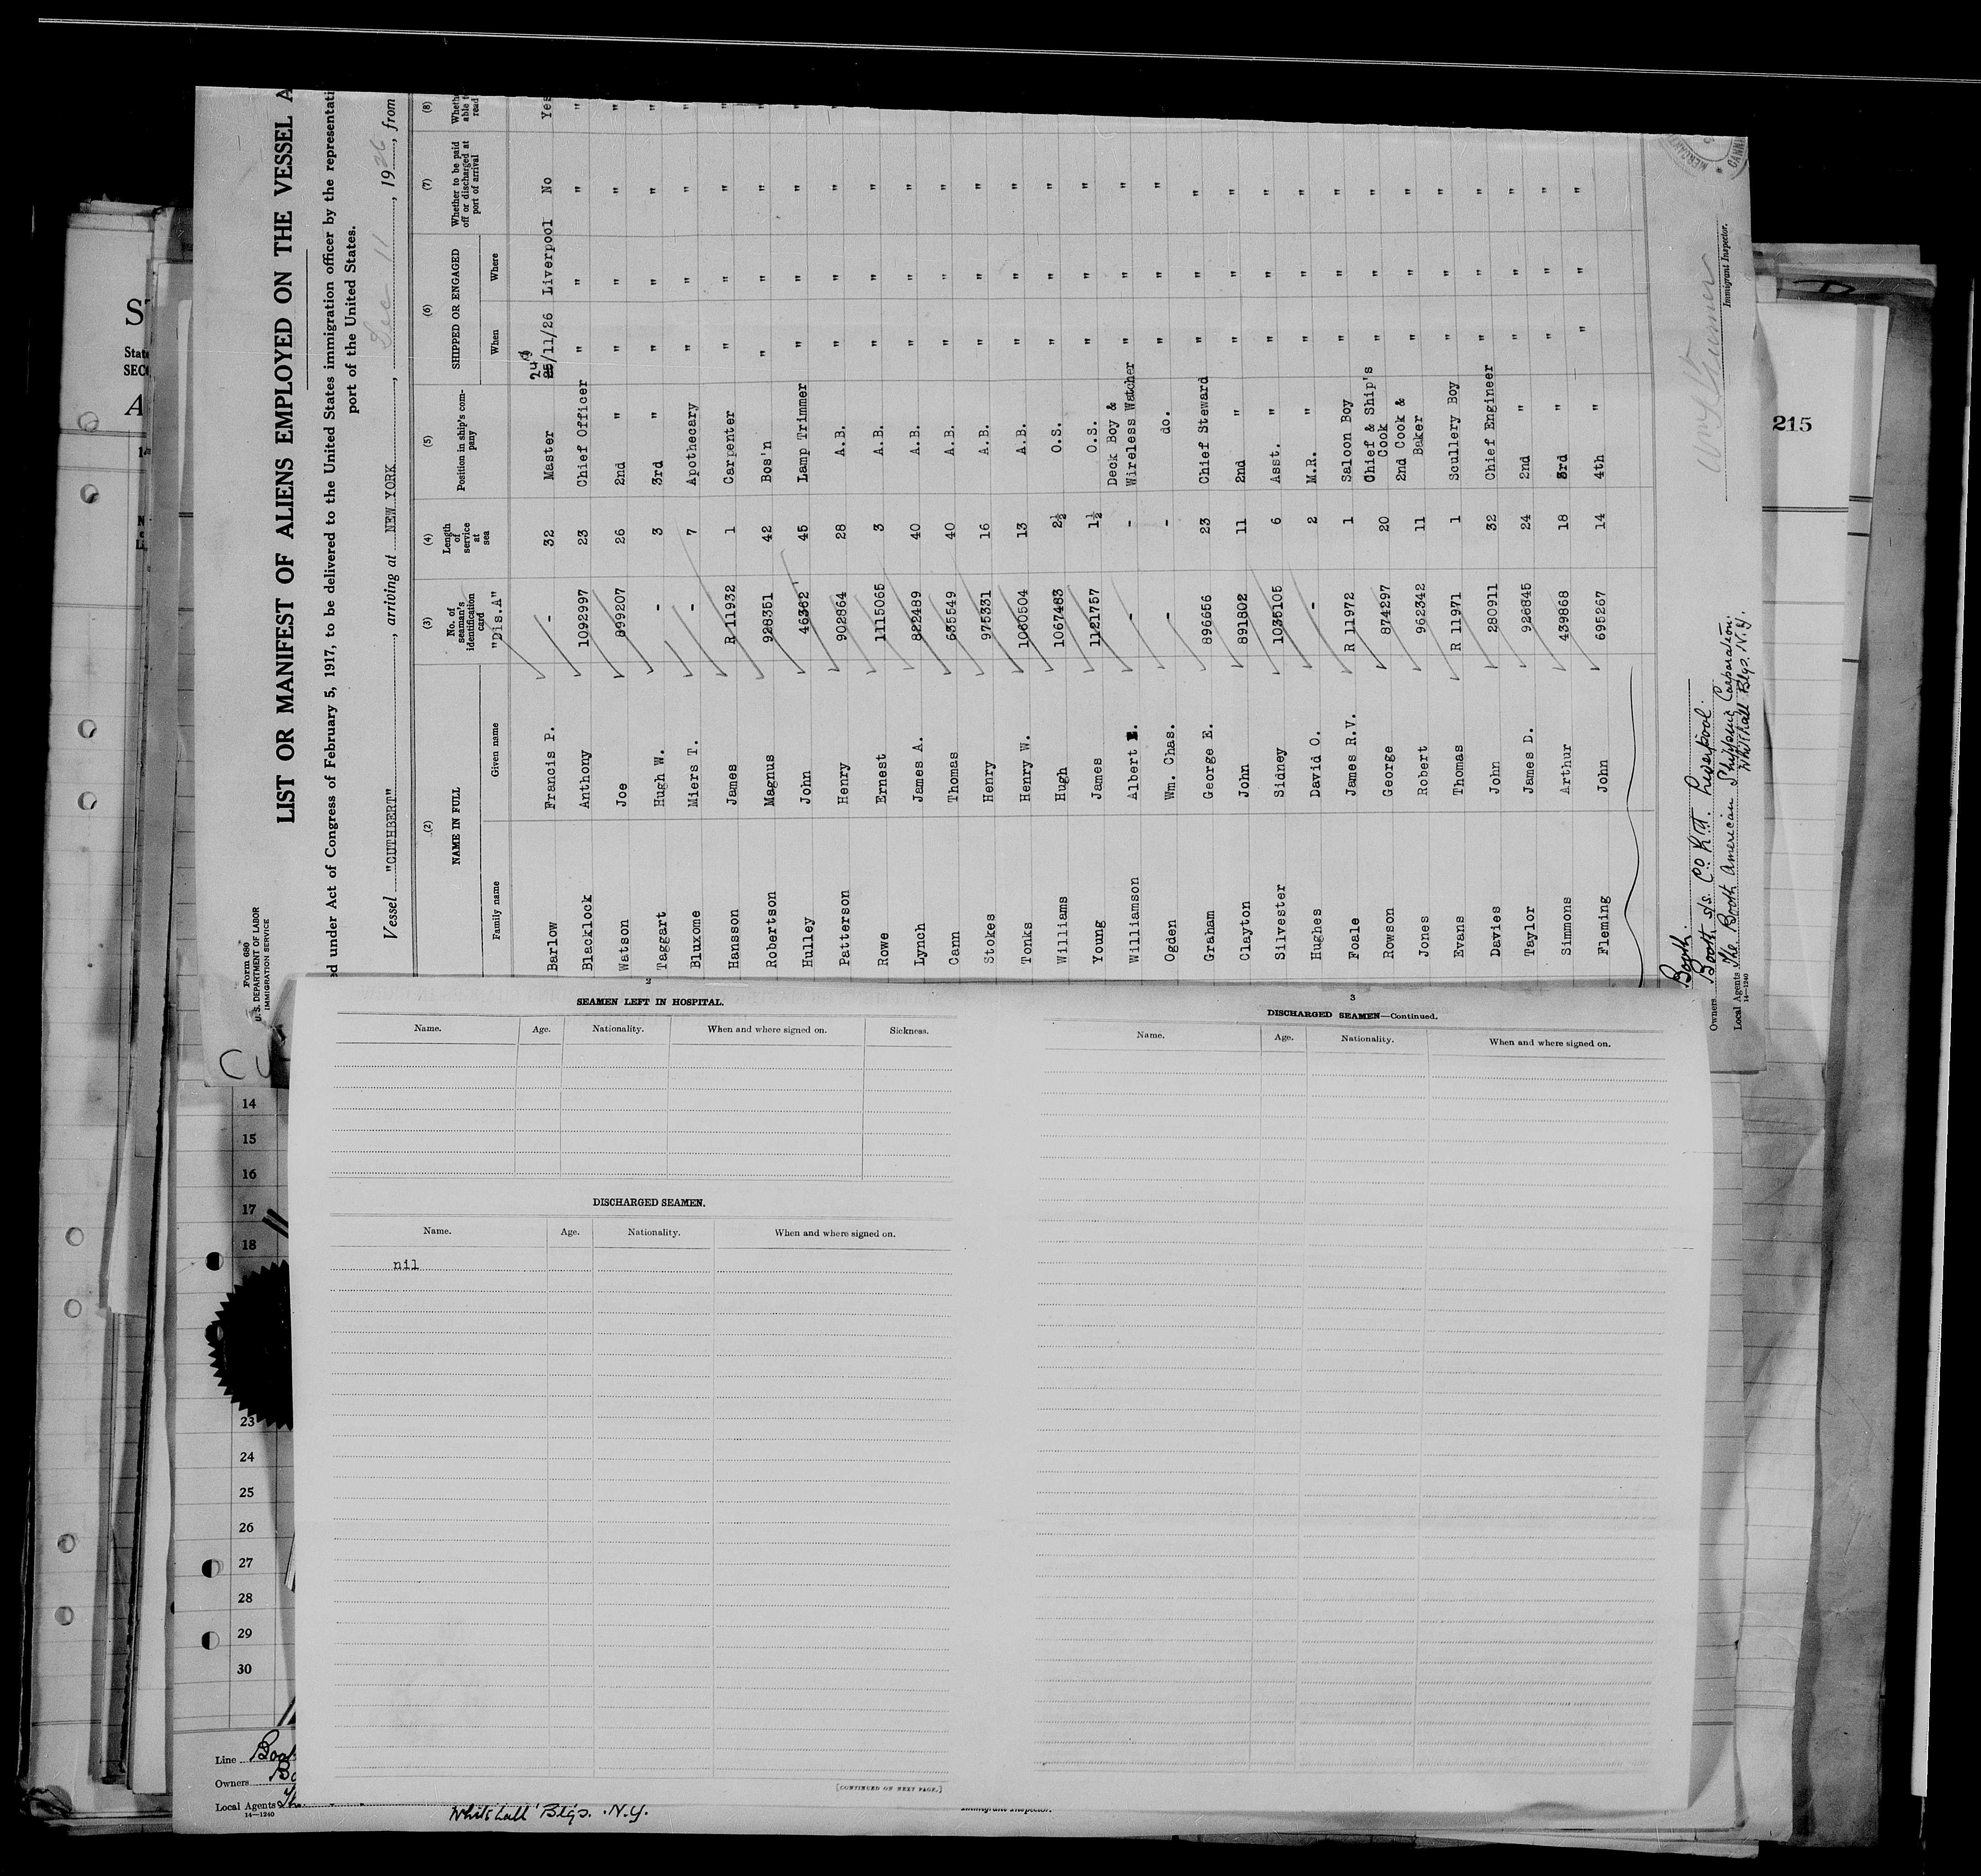 Form 680
U. S. DEPARTMENT OF LABOR
IMMIGRATION SERVICE
LIST OR MANIFEST OF ALIENS EMPLOYED ON THE VESSEL A
d under Act of Congress of February 5, 1917, to be delivered to the United States immigration officer by the representati
port of the United States.
Vessel "CUTHBERT", arriving at NEW YORK, Dec 11, 1926, from
(2) (3) (4) (5) (6) (7) (8)
NAME IN FULL No. of seaman's identification card Length of service at sea Position in ship's company SHIPPED OR ENGAGED Whether to be paid off or discharged at port of arrival Wheth able t read
Family name Given name "Dis.A" When Where
Barlow Francis P. - 32 Master 24 25/11/26 Liverpool No Yes
Blacklock Anthony 1092997 23 Chief Officer " " " "
Watson Joe 899207 26 2nd " " " " "
Taggart Hugh W. - 3 3rd " " " " "
Bluxome Miers T. - 7 Apothecary " " " "
Hansson James R 11932 1 Carpenter " " " "
Robertson Magnus 928351 42 Bos'n " " " "
Hulley John 46362 45 Lamp Trimmer " " " "
Patterson Henry 902864 28 A.B. " " "
Rowe Ernest 1115065 3 A.B. " " "
Lynch James A. 822489 40 A.B. " " "
Cann Thomas 635549 40 A.B. " " "
Stokes Henry 975331 16 A.B. " " "
Tonks Henry W. 1060504 13 A.B. " " "
Williams Hugh 1067483 2½ O.S. " " "
Young James 1121757 1½ O.S. " " "
Williamson Albert E. - - Deck Boy & Wireless Watcher " " "
Ogden Wm. Chas. - - do. " " "
Graham George E. 896656 23 Chief Steward " " "
Clayton John 891802 11 2nd " " " "
Silvester Sidney 1035105 6 Asst. " " " "
Hughes David O. - 2 M.R. " " " "
Foale James R.V. R 11972 1 Saloon Boy " " "
Rowson George 874297 20 Chief & Ship's Cook " " "
Jones Robert 962342 11 2nd Cook & Baker " " "
Evans Thomas R 11971 1 Scullery Boy " " "
Davies John 280911 32 Chief Engineer " " "
Taylor James D. 928845 24 2nd " " " "
Simmons Arthur 439868 18 3rd " " " "
Fleming John 695267 14 4th " " " "
Booth.
Owners Booth s/s. Co Ltd. Liverpool.
Local Agents The Booth American Shipping Corporation.
Whitehall Blgs. N.Y.
14—1240
Immigrant Inspector.
215
2
SEAMEN LEFT IN HOSPITAL.
Name. Age. Nationality. When and where signed on. Sickness.
DISCHARGED SEAMEN.
Name. Age. Nationality. When and where signed on.
nil
[CONTINUED ON NEXT PAGE.]
3
DISCHARGED SEAMEN—Continued.
Name. Age. Nationality. When and where signed on.
14
15
16
17
18
23
24
25
26
27
28
29
30
Line
Owners
Local Agents
14—1240
Whitehall Blgs. N.Y.
Immigrant Inspector.